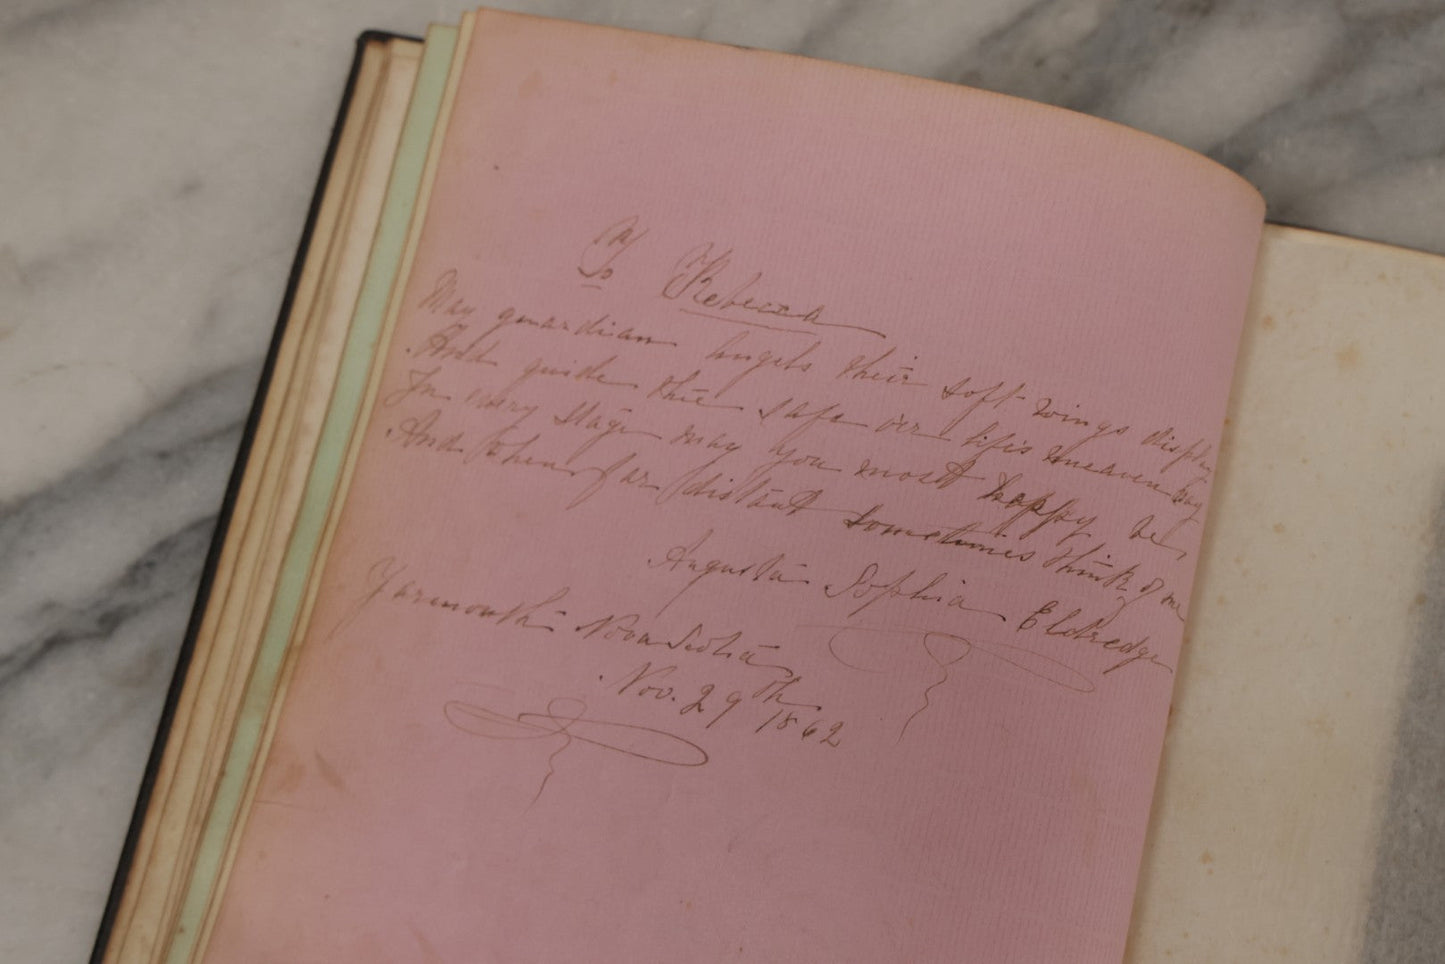 To Rebecca
May guardian angels their soft wings display
And guide thee safe o'er life's uneaven way
In every stage may you most happy be,
And when far distant sometimes think of me
Augusta Sophia Eldredge
Yarmouth Nova Scotia
Nov. 29th 1862